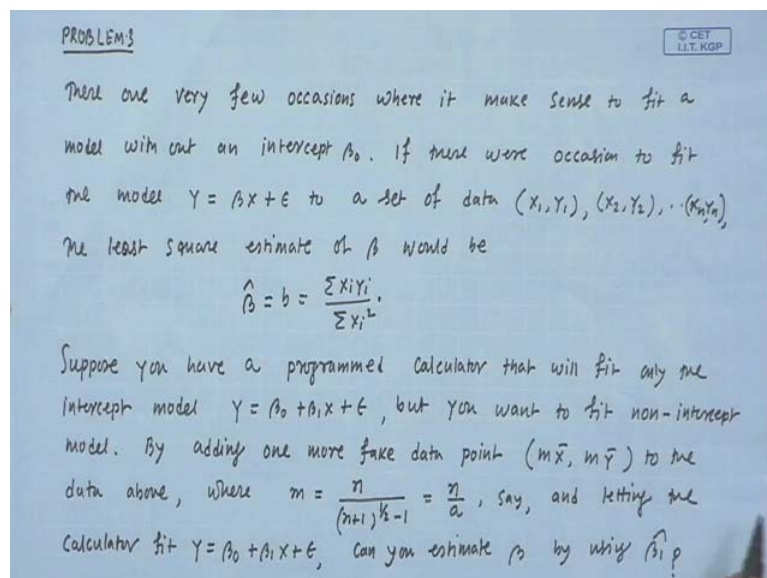 PROBLEM:3
© CET
I.I.T. KGP
There are very few occasions where it make sense to fit a
model with out an intercept β₀. If there were occasion to fit
the model Y = βX + ε to a set of data (X₁,Y₁), (X₂,Y₂), ..(XₙYₙ),
the least square estimate of β would be
β̂ = b = ΣXiYi / ΣXi².
Suppose you have a programmed calculator that will fit only the
intercept model Y = β₀ + β₁X + ε, but you want to fit non-intercept
model. By adding one more fake data point (mX̄, mȲ) to the
data above, where m = n / ((n+1)^½ - 1) = n/a, say, and letting the
calculator fit Y = β₀ + β₁X + ε, can you estimate β by using β̂₁ ?